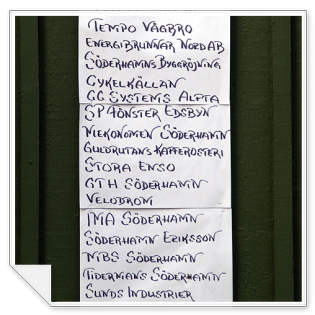 TEMPO VÅGBRO
ENERGIBRUNNAR NORD AB
SÖDERHAMNS BYGGRÖJNING
CYKELKÄLLAN
CC SYSTEMS ALFTA
SP FÖNSTER EDSBYN
NIEKONOMEN SÖDERHAMN
GULDRUTANS KAFFEROSTERI
STORA ENSO
GTH SÖDERHAMN
VELODROM
IMA SÖDERHAMN
SÖDERHAMN ERIKSSON
MBS SÖDERHAMN
TIDERMANS SÖDERHAMN
SUNDS INDUSTRIER